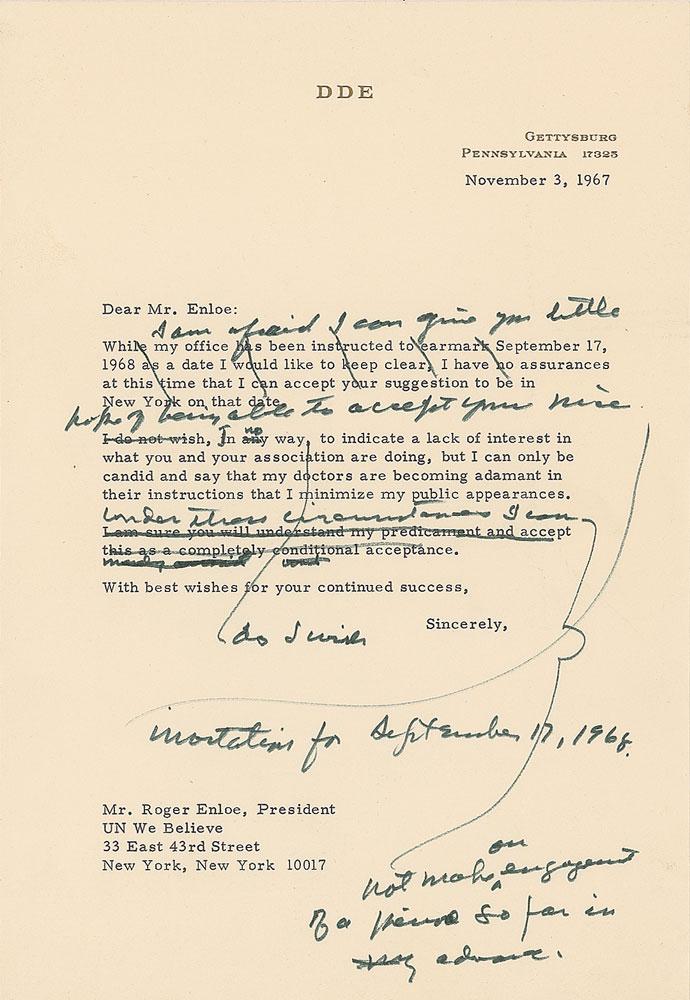 DDE
GETTYSBURG
PENNSYLVANIA 17325
November 3, 1967
Dear Mr. Enloe:
I am afraid I can give you little
While my office has been instructed to earmark September 17,
1968 as a date I would like to keep clear, I have no assurances
at this time that I can accept your suggestion to be in
New York on that date.
hope of being able to accept your nice
I do not wish, In any no way, to indicate a lack of interest in
what you and your association are doing, but I can only be
candid and say that my doctors are becoming adamant in
their instructions that I minimize my public appearances.
Under these circumstances I can
I am sure you will understand my predicament and accept
this as a completely conditional acceptance.
With best wishes for your continued success,
Sincerely,
do I wish
invitation for September 17, 1968.
Mr. Roger Enloe, President
UN We Believe
33 East 43rd Street
New York, New York 10017
on
not make engagement
of a so far in
advance.